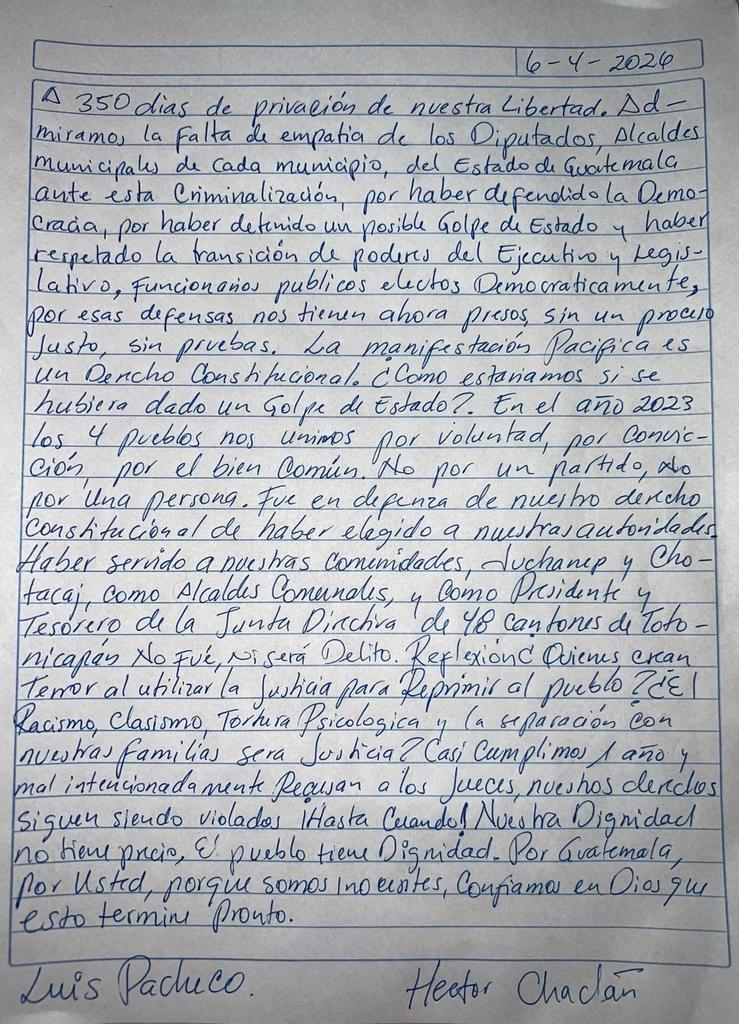 6-4-2026
A 350 dias de privación de nuestra Libertad. Ad-
miramos la falta de empatia de los Diputados, Alcaldes
municipales de cada municipio, del Estado de Guatemala
ante esta Criminalización, por haber defendido la Demo-
cracia, por haber detenido un posible Golpe de Estado y haber
respetado la transición de poderes del Ejecutivo y Legis-
lativo, Funcionarios publicos electos Democraticamente,
por esas defensas nos tienen ahora presos, sin un proceso
Justo, sin pruebas. La manifestación Pacifica es
un Derecho Constitucional. ¿Como estariamos si se
hubiera dado un Golpe de Estado?. En el año 2023
los 4 pueblos nos unimos por voluntad, por Convic-
ción, por el bien Común. No por un partido, No
por una persona. Fue en defenza de nuestro derecho
Constitucional de haber elegido a nuestras autoridades.
Haber servido a nuestras Comunidades, Juchanep y Cho-
tacaj, como Alcaldes Comunales, y como Presidente y
Tesorero de la Junta Directiva de 48 cantones de Toto-
nicapán No Fué, ni será Delito. Reflexión ¿Quienes crean
Terror al utilizar la Justicia para Reprimir al pueblo? ¿El
Racismo, Clasismo, Tortura Psicologica y la separación con
nuestras familias sera Justicia? Casi Cumplimos 1 año y
mal intencionadamente Recusan a los Jueces, nuestros derechos
siguen siendo violados ¡Hasta Cuando! Nuestra Dignidad
no tiene precio, El pueblo tiene Dignidad. Por Guatemala,
por Usted, porque somos Inocentes, Confiamos en Dios que
esto termine Pronto.
Luis Pacheco. Hector Chaclán